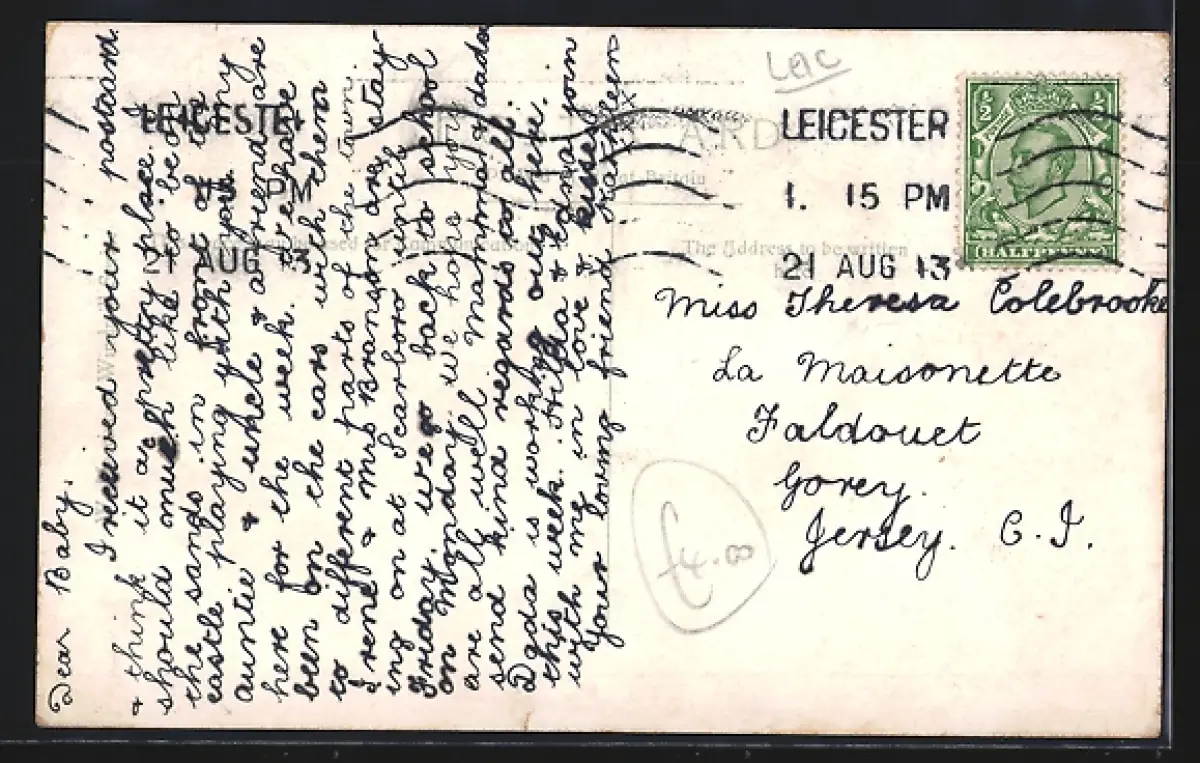 Dear Baby.
I received your postcard.
& think it a pretty place. I
should much like to be on
the sands in front of the
castle playing with you. My
auntie & uncle & a friend are
here for the week. We have
been in the cars with them
to different parts of the town.
Irene & Mrs Branson are stay-
ing on at Scarboro until
Friday. We go back to school
on Monday. We hope you
are all well. Mamma & dada
send kind regards to all.
Dada is working our heti
this week. Hilda & Edna join
with me in love & kisses from
Your loving friend Kathleen
LEICESTER
PM
21 AUG 13
Lac
ARD
Britain
The Address to be written
LEICESTER
1. 15 PM
21 AUG 13
½ ½
HALFPENNY
Miss Theresa Colebrooke
La Maisonette
Faldouet
Gorey.
Jersey. C.I.
£4.00